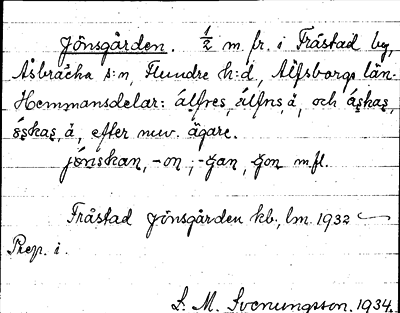 Jönsgården. 1/2 m. fr. i Fråstad by,
Åsbräcka s:n, Flundre h:d, Älfsborgs län.
Hemmansdelar: álfres, álfns, å, och áskas,
óskas, å, efter nuv. ägare.
jónskan, -on, -gan, gon m fl.
Fråstad Jönsgården kb., lm. 1932
Prep. i.
S. M. Svenungsson. 1934.